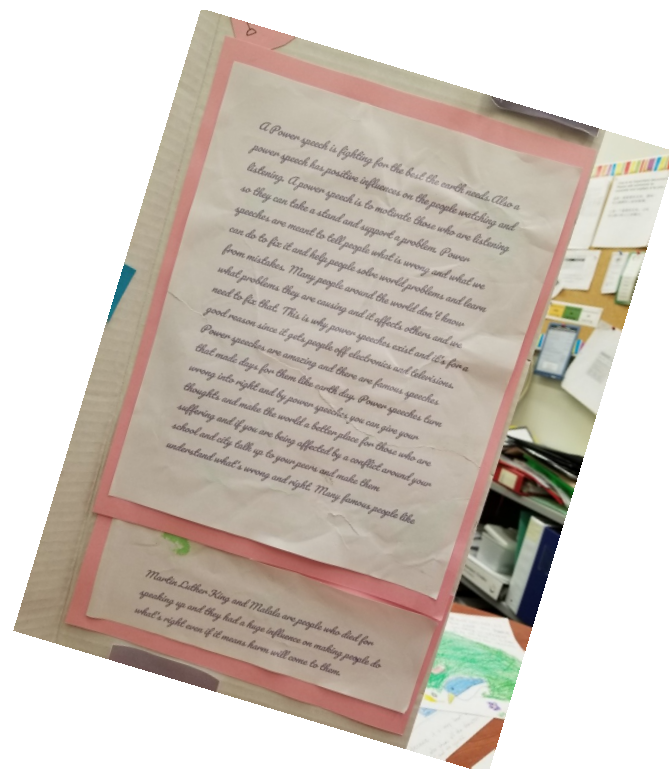 A Power speech is fighting for the best the earth needs. Also a
power speech has positive influences on the people watching and
listening. A power speech is to motivate those who are listening
so they can take a stand and support a problem. Power
speeches are meant to tell people what is wrong and what we
can do to fix it and help people solve world problems and learn
from mistakes. Many people around the world don't know
what problems they are causing and it effects others and we
need to fix that. This is why power speeches exist and it's for a
good reason since it gets people off electronics and televisions.
Power speeches are amazing and there are famous speeches
that made days for them like earth day. Power speeches turn
wrong into right and by power speeches you can give your
thoughts and make the world a better place for those who are
suffering and if you are being affected by a conflict around your
school and city talk up to your peers and make them
understand what's wrong and right. Many famous people like
Martin Luther King and Malala are people who died for
speaking up and they had a huge influence on making people do
what's right even if it means harm will come to them.